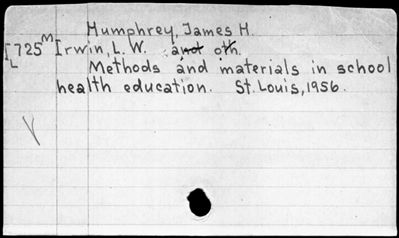 Humphrey, James H.
[725 M Irwin, L. W. and oth.
L Methods and materials in school
health education. St. Louis, 1956.